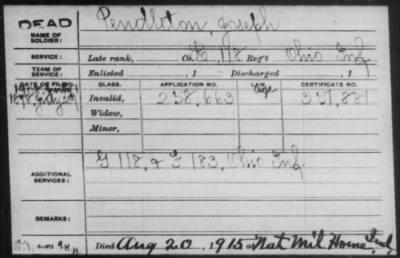 DEAD
NAME OF SOLDIER: Pendleton, Joseph
SERVICE: Late rank, Co. E, 118 Reg't Ohio Inf.
TERM OF SERVICE: Enlisted , 1 Discharged , 1
DATE OF FILING. CLASS. APPLICATION NO. LAW. CERTIFICATE NO.
Invalid, 238,663 Age 337,881
Widow,
Minor,
ADDITIONAL SERVICES: G 118, & I 183, Ohio Inf.
REMARKS:
Died Aug 20, 1915 at Nat Mil Home, Ind.